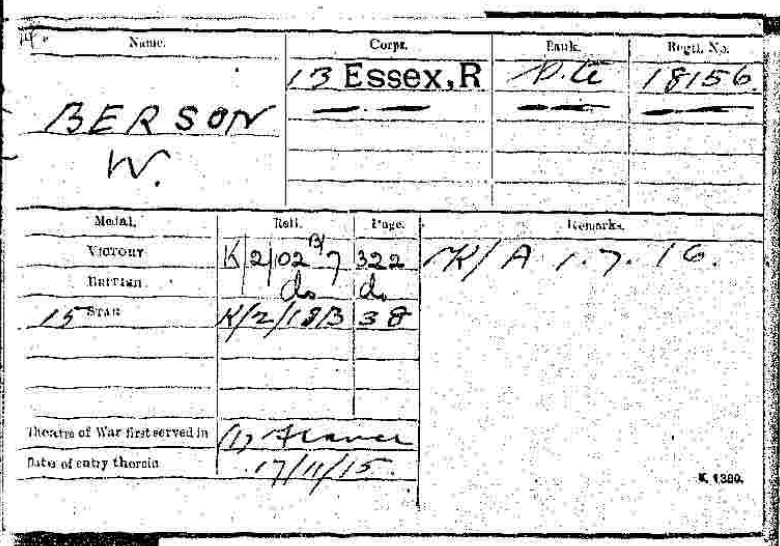 Name. Corps. Rank. Regtl. No.
BERSON 13 Essex, R Pte 18156
W.
Medal. Roll. Page. Remarks.
VICTORY K/2/102 B/7 322 K/A 1.7.16.
BRITISH do do
15 STAR K/2/18B 38
Theatre of War first served in (1) France
Date of entry therein 17/11/15.
K. 1380.